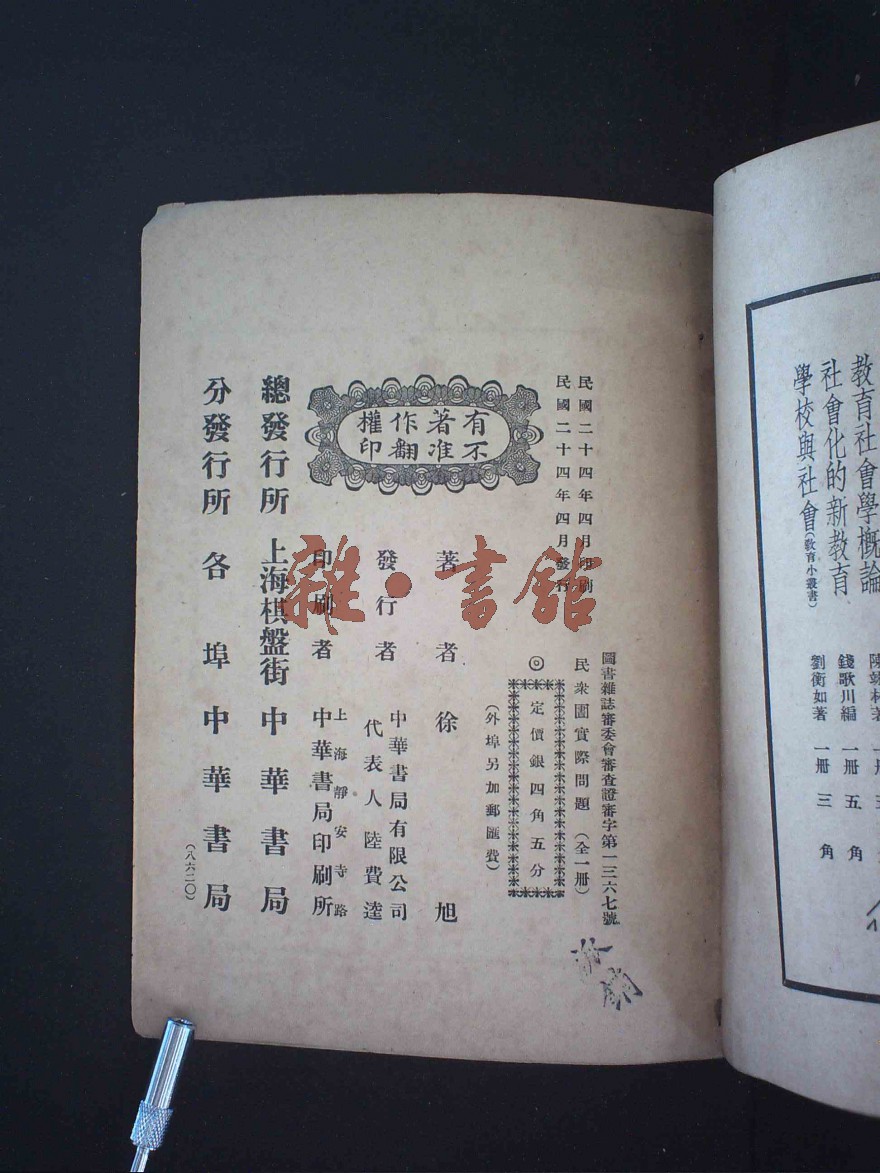 民國二十四年四月印刷
民國二十四年四月發行
圖書雜誌審委會審查證審字第一三六七號
民衆團實際問題（全一册）
◎定價銀四角五分
（外埠另加郵匯費）
有著作權
不准翻印
著者 徐旭
發行者 中華書局有限公司
代表人陸費逵
印刷者 上海靜安寺路
中華書局印刷所
總發行所 上海棋盤街 中華書局
分發行所 各埠中華書局
（八六二〇）
雜·書館
教育社會學概論
社會化的新教育 錢歌川編 一册 五角
學校與社會（教育小叢書） 劉衡如著 一册 三角